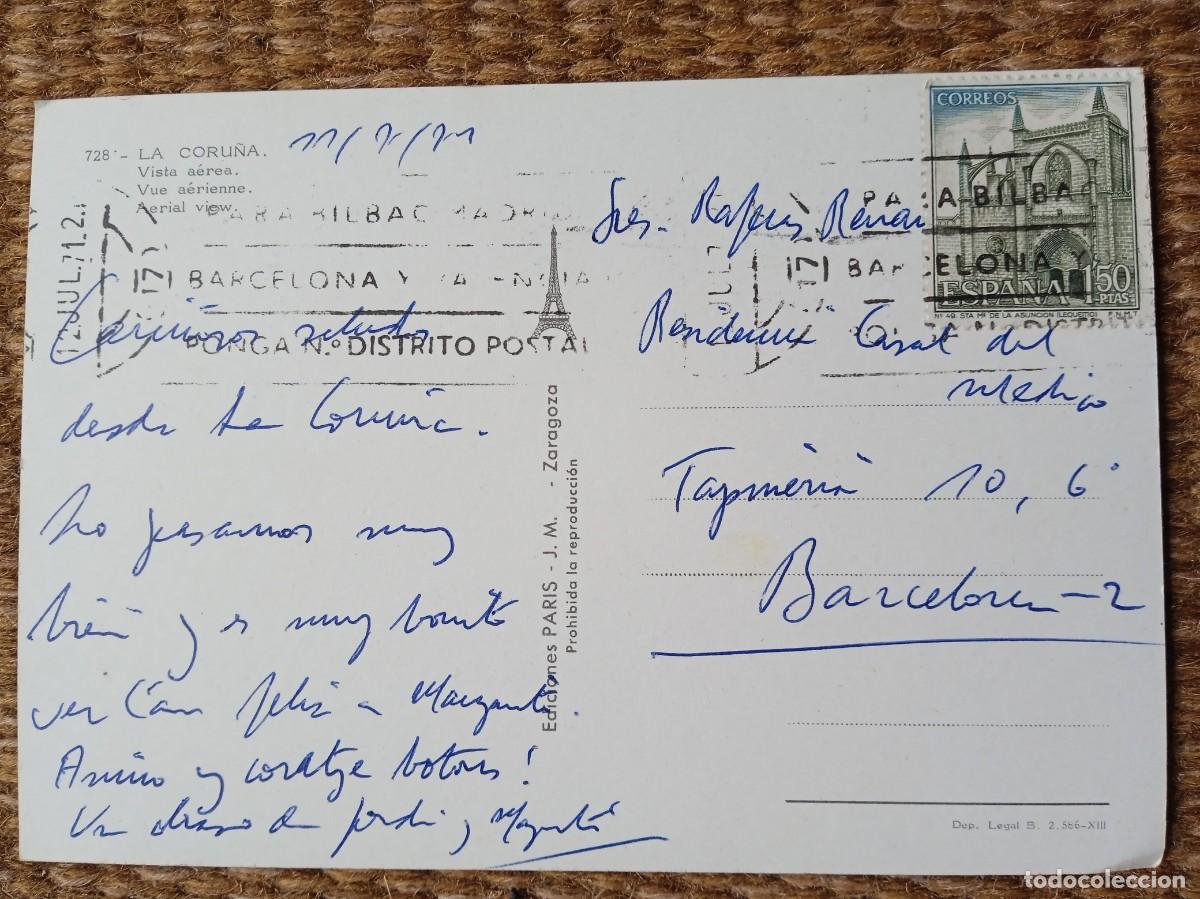 728 - LA CORUÑA.
Vista aérea.
Vue aérienne.
Aerial view.
11/7/71
12 JUL.71.2
PARA BILBAO MADRID
BARCELONA Y VALENCIA
PONGA N.º DISTRITO POSTAL
Cariñosos saludos
desde La Coruña.
Lo pasamos muy
bien y es muy bonito
ver tan feliz a Margarita.
Animo y coratje botons!
Un abrazo de Jordi y Margarita
Ediciones PARIS - J. M. - Zaragoza
Prohibida la reproducción
CORREOS
ESPAÑA 1'50
PTAS
Nº 49. STA Mª DE LA ASUNCION (LEQUEITIO) F.N.M.T
JUL.7
PARA BILBAO
BARCELONA Y
Sres.
Residencia Casal del
Medico
Tapineria 10, 6º
Barcelona-2
Dep. Legal B. 2.586-XIII
todocoleccion